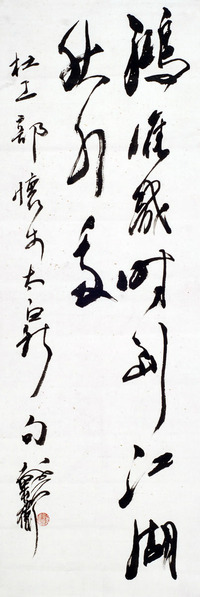 鴻雁幾時到江湖
秋水多
杜工部懷李太白詩句